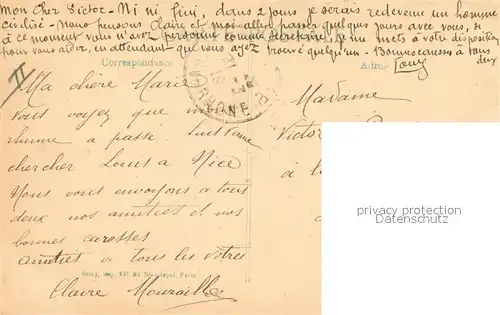 mon Cher Victor - Ni ni fini, dans 2 jours je serais redevenu un homme
civilisé - Nous pensons Claire et moi aller passer quelques jours avec vous, si
à ce moment vous n'avez personne comme secrétaire, je me mets à votre disposition
pour vous aider, en attendant que vous ayez trouvé quelqu'un - Bonnes caresses à tous
deux
Louis
Correspondance
Ma chère Marie
Vous voyez que mon
rhume a passé. Suis venue
chercher Louis a Nice
Nous vous envoyons a tous
deux nos amitiés et nos
bonnes caresses
amitiés a tous les vôtres
Claire Mouraille
Paris
Madame
Victor
à
privacy protection
Datenschutz